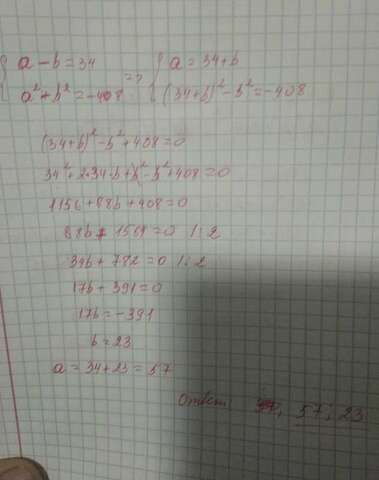 { a - b = 34 => { a = 34 + b
a² + b² = -408 (34+b)² - b² = -408
(34+b)² - b² + 408 = 0
34² + 2·34·b + b² - b² + 408 = 0
1156 + 68b + 408 = 0
68b + 1564 = 0 |:2
34b + 782 = 0 |:2
17b + 391 = 0
17b = -391
b = 23
a = 34 + 23 = 57
Ответ 57; 23